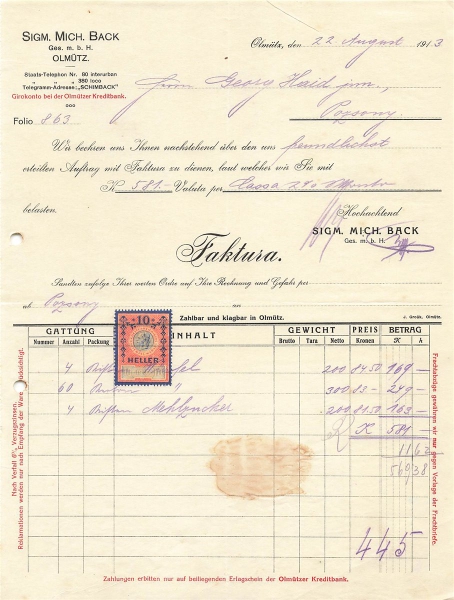 SIGM. MICH. BACK
Ges. m. b. H.
OLMÜTZ.
Staats-Telephon Nr. 80 interurban
" " " 380 loco
Telegramm-Adresse: „SCHIMBACK"
Girokonto bei der Olmützer Kreditbank.
Folio 863
Olmütz, den 22 August 1913
Herrn Georg Haid jun.,
Pozsony
Wir beehren uns Ihnen nachstehend über den uns freundlichst
erteilten Auftrag mit Faktura zu dienen, laut welcher wir Sie mit
K 581.- Valuta per Cassa 2%
belasten.
Hochachtend
SIGM. MICH. BACK
Ges. m. b. H.
Faktura.
Sandten zufolge Ihrer werten Ordre auf Ihre Rechnung und Gefahr per
ab Pozsony an
Zahlbar und klagbar in Olmütz.
J. Groák, Olmütz.
GATTUNG INHALT GEWICHT PREIS BETRAG
Nummer Anzahl Packung Brutto Tara Netto Kronen K h
10
HELLER
4 200 84.50 169 —
60 " 300 83.- 249 —
4 200 81.50 163 —
K 581 —
11 62
569 38
445
Nach Verfall 6% Verzugszinsen.
Reklamationen werden nur nach Empfang der Ware berücksichtigt.
Frachtabzüge gewähren wir nur gegen Vorlage der Frachtbriefe.
Zahlungen erbitten nur auf beiliegenden Erlagschein der Olmützer Kreditbank.